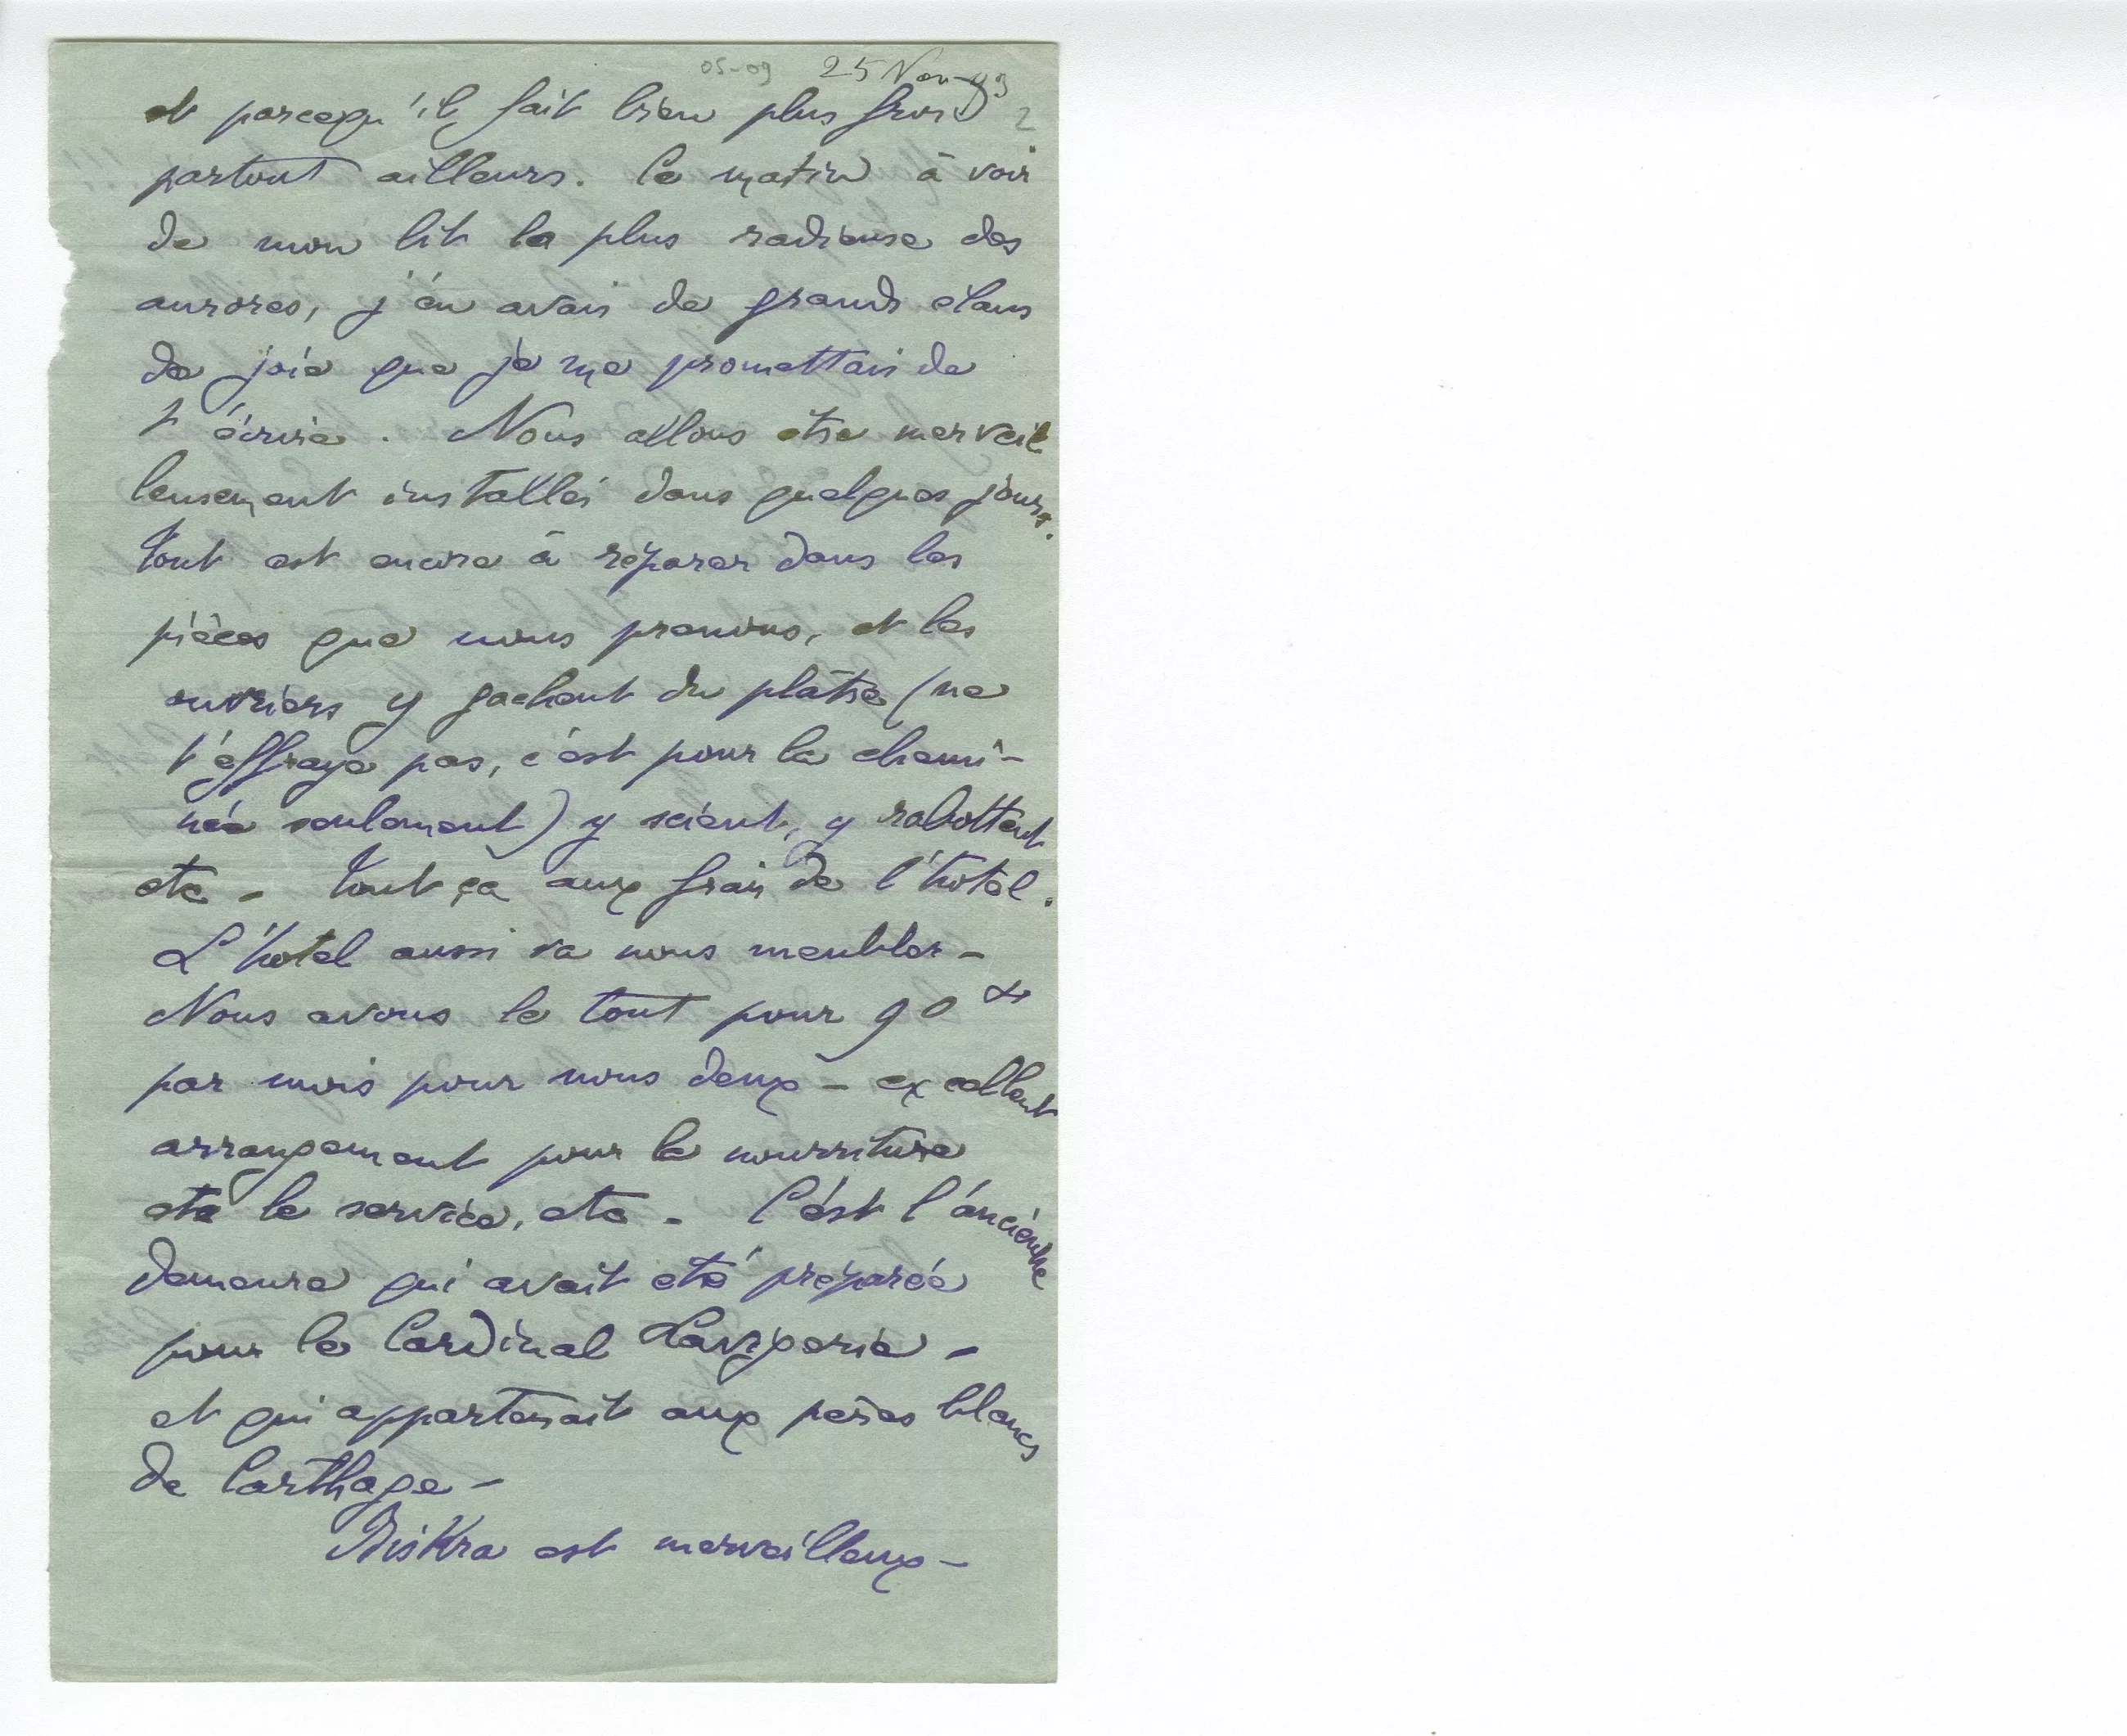 05-09 25 Nov-93
et parcequ'il fait bien plus froid 2
partout ailleurs. Ce matin à voir
de mon lit la plus radieuse des
aurores, j'en avais de grands élans
de joie que je me promettais de
t'écrire. Nous allons être merveil
leusement installés dans quelques jours.
Tout est encore à réparer dans les
pièces que nous prenons, et les
ouvriers y gachent du plâtre (ne
t'effraye pas, c'est pour la chemi-
née seulement) y scient, y rabottent
etc - Tout ça aux frais de l'hotel.
L'hotel aussi va nous meubler -
Nous avons le tout pour 90 fr
par mois pour nous deux - excellent
arrangement pour la nourriture
etc le service, etc - C'est l'ancienne
demeure qui avait été préparée
pour le Cardinal Lavigerie -
et qui appartenait aux pères blancs
de Carthage -
Biskra est merveilleux -